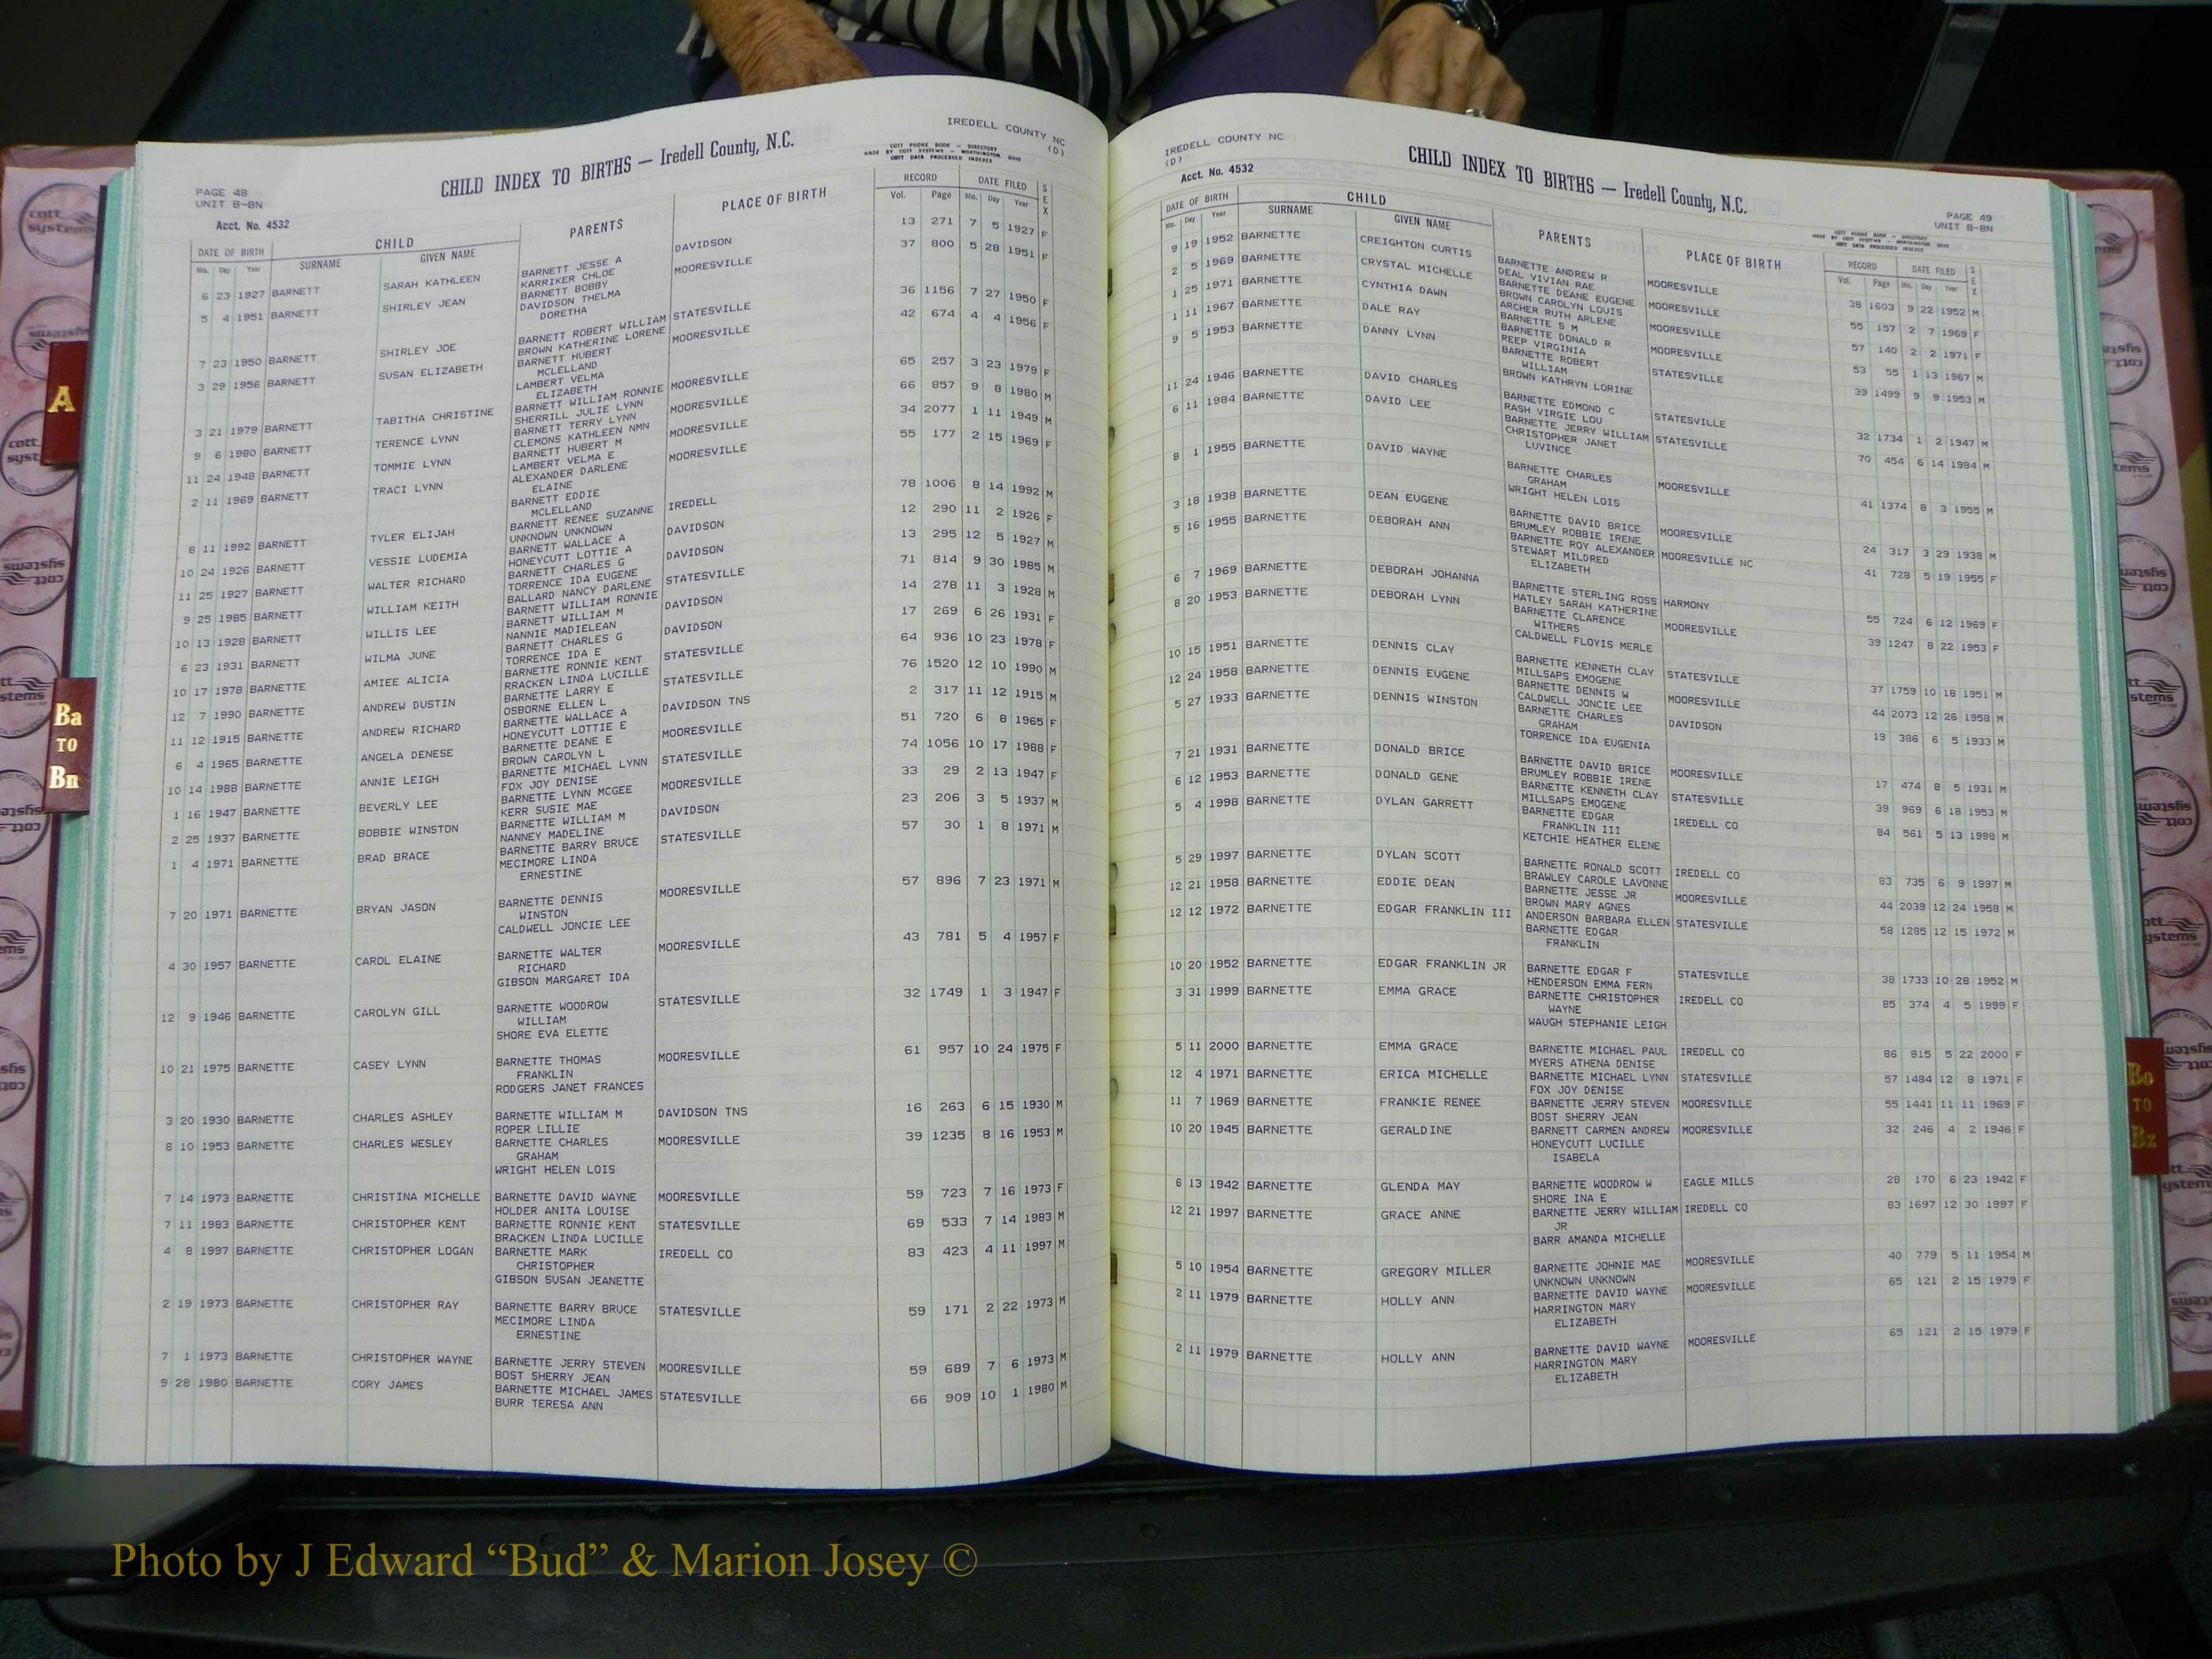 IREDELL COUNTY NC
(D)
COTT PHONE BOOK — DIRECTORY
MADE BY COTT SYSTEMS — WORTHINGTON, OHIO
COTT DATA PROCESSED INDEXES
CHILD INDEX TO BIRTHS — Iredell County, N.C.
PAGE 48
UNIT B-BN
Acct. No. 4532
DATE OF BIRTH CHILD PARENTS PLACE OF BIRTH RECORD DATE FILED SEX
Mo. Day Year SURNAME GIVEN NAME Vol. Page Mo. Day Year
6 23 1927 BARNETT SARAH KATHLEEN BARNETT JESSE A DAVIDSON 13 271 7 5 1927 F
KARRIKER CHLOE
5 4 1951 BARNETT SHIRLEY JEAN BARNETT BOBBY MOORESVILLE 37 800 5 28 1951 F
DAVIDSON THELMA
DORETHA
7 23 1950 BARNETT SHIRLEY JOE BARNETT ROBERT WILLIAM STATESVILLE 36 1156 7 27 1950 F
BROWN KATHERINE LORENE
3 29 1956 BARNETT SUSAN ELIZABETH BARNETT HUBERT MOORESVILLE 42 674 4 4 1956 F
MCLELLAND
LAMBERT VELMA
ELIZABETH
3 21 1979 BARNETT TABITHA CHRISTINE BARNETT WILLIAM RONNIE MOORESVILLE 65 257 3 23 1979 F
SHERRILL JULIE LYNN
9 6 1980 BARNETT TERENCE LYNN BARNETT TERRY LYNN MOORESVILLE 66 857 9 8 1980 M
CLEMONS KATHLEEN NMN
11 24 1948 BARNETT TOMMIE LYNN BARNETT HUBERT M MOORESVILLE 34 2077 1 11 1949 M
LAMBERT VELMA E
2 11 1969 BARNETT TRACI LYNN ALEXANDER DARLENE MOORESVILLE 55 177 2 15 1969 F
ELAINE
BARNETT EDDIE
MCLELLAND
8 11 1992 BARNETT TYLER ELIJAH BARNETT RENEE SUZANNE IREDELL 78 1006 8 14 1992 M
UNKNOWN UNKNOWN
10 24 1926 BARNETT VESSIE LUDEMIA BARNETT WALLACE A DAVIDSON 12 290 11 2 1926 F
HONEYCUTT LOTTIE A
11 25 1927 BARNETT WALTER RICHARD BARNETT CHARLES G DAVIDSON 13 295 12 5 1927 M
TORRENCE IDA EUGENE
9 25 1985 BARNETT WILLIAM KEITH BALLARD NANCY DARLENE STATESVILLE 71 814 9 30 1985 M
BARNETT WILLIAM RONNIE
10 13 1928 BARNETT WILLIS LEE BARNETT WILLIAM M DAVIDSON 14 278 11 3 1928 M
NANNIE MADIELEAN
6 23 1931 BARNETT WILMA JUNE BARNETT CHARLES G DAVIDSON 17 269 6 26 1931 F
TORRENCE IDA E
10 17 1978 BARNETTE AMIEE ALICIA BARNETTE RONNIE KENT STATESVILLE 64 936 10 23 1978 F
RRACKEN LINDA LUCILLE
12 7 1990 BARNETTE ANDREW DUSTIN BARNETTE LARRY E STATESVILLE 76 1520 12 10 1990 M
OSBORNE ELLEN L
11 12 1915 BARNETTE ANDREW RICHARD BARNETTE WALLACE A DAVIDSON TNS 2 317 11 12 1915 M
HONEYCUTT LOTTIE E
6 4 1965 BARNETTE ANGELA DENESE BARNETTE DEANE E MOORESVILLE 51 720 6 8 1965 F
BROWN CAROLYN L
10 14 1988 BARNETTE ANNIE LEIGH BARNETTE MICHAEL LYNN STATESVILLE 74 1056 10 17 1988 F
FOX JOY DENISE
1 16 1947 BARNETTE BEVERLY LEE BARNETTE LYNN MCGEE MOORESVILLE 33 29 2 13 1947 F
KERR SUSIE MAE
2 25 1937 BARNETTE BOBBIE WINSTON BARNETTE WILLIAM M DAVIDSON 23 206 3 5 1937 M
NANNEY MADELINE
1 4 1971 BARNETTE BRAD BRACE BARNETTE BARRY BRUCE STATESVILLE 57 30 1 8 1971 M
MECIMORE LINDA
ERNESTINE
7 20 1971 BARNETTE BRYAN JASON BARNETTE DENNIS MOORESVILLE 57 896 7 23 1971 M
WINSTON
CALDWELL JONCIE LEE
4 30 1957 BARNETTE CAROL ELAINE BARNETTE WALTER MOORESVILLE 43 781 5 4 1957 F
RICHARD
GIBSON MARGARET IDA
12 9 1946 BARNETTE CAROLYN GILL BARNETTE WOODROW STATESVILLE 32 1749 1 3 1947 F
WILLIAM
SHORE EVA ELETTE
10 21 1975 BARNETTE CASEY LYNN BARNETTE THOMAS MOORESVILLE 61 957 10 24 1975 F
FRANKLIN
RODGERS JANET FRANCES
3 20 1930 BARNETTE CHARLES ASHLEY BARNETTE WILLIAM M DAVIDSON TNS 16 263 6 15 1930 M
ROPER LILLIE
8 10 1953 BARNETTE CHARLES WESLEY BARNETTE CHARLES MOORESVILLE 39 1235 8 16 1953 M
GRAHAM
WRIGHT HELEN LOIS
7 14 1973 BARNETTE CHRISTINA MICHELLE BARNETTE DAVID WAYNE MOORESVILLE 59 723 7 16 1973 F
HOLDER ANITA LOUISE
7 11 1983 BARNETTE CHRISTOPHER KENT BARNETTE RONNIE KENT STATESVILLE 69 533 7 14 1983 M
BRACKEN LINDA LUCILLE
4 8 1997 BARNETTE CHRISTOPHER LOGAN BARNETTE MARK IREDELL CO 83 423 4 11 1997 M
CHRISTOPHER
GIBSON SUSAN JEANETTE
2 19 1973 BARNETTE CHRISTOPHER RAY BARNETTE BARRY BRUCE STATESVILLE 59 171 2 22 1973 M
MECIMORE LINDA
ERNESTINE
7 1 1973 BARNETTE CHRISTOPHER WAYNE BARNETTE JERRY STEVEN MOORESVILLE 59 689 7 6 1973 M
BOST SHERRY JEAN
9 28 1980 BARNETTE CORY JAMES BARNETTE MICHAEL JAMES STATESVILLE 66 909 10 1 1980 M
BURR TERESA ANN
IREDELL COUNTY NC
(D)
Acct. No. 4532
CHILD INDEX TO BIRTHS — Iredell County, N.C.
PAGE 49
UNIT B-BN
COTT PHONE BOOK — DIRECTORY
MADE BY COTT SYSTEMS — WORTHINGTON, OHIO
COTT DATA PROCESSED INDEXES
DATE OF BIRTH CHILD PARENTS PLACE OF BIRTH RECORD DATE FILED SEX
Mo. Day Year SURNAME GIVEN NAME Vol. Page Mo. Day Year
9 19 1952 BARNETTE CREIGHTON CURTIS BARNETTE ANDREW R MOORESVILLE 38 1603 9 22 1952 M
DEAL VIVIAN RAE
2 5 1969 BARNETTE CRYSTAL MICHELLE BARNETTE DEANE EUGENE MOORESVILLE 55 157 2 7 1969 F
BROWN CAROLYN LOUIS
1 25 1971 BARNETTE CYNTHIA DAWN ARCHER RUTH ARLENE MOORESVILLE 57 140 2 2 1971 F
BARNETTE S M
1 11 1967 BARNETTE DALE RAY BARNETTE DONALD R MOORESVILLE 53 55 1 13 1967 M
REEP VIRGINIA
9 5 1953 BARNETTE DANNY LYNN BARNETTE ROBERT STATESVILLE 39 1499 9 9 1953 M
WILLIAM
BROWN KATHRYN LORINE
11 24 1946 BARNETTE DAVID CHARLES BARNETTE EDMOND C STATESVILLE 32 1734 1 2 1947 M
RASH VIRGIE LOU
6 11 1984 BARNETTE DAVID LEE BARNETTE JERRY WILLIAM STATESVILLE 70 454 6 14 1984 M
CHRISTOPHER JANET
LUVINCE
8 1 1955 BARNETTE DAVID WAYNE BARNETTE CHARLES MOORESVILLE 41 1374 8 3 1955 M
GRAHAM
WRIGHT HELEN LOIS
3 18 1938 BARNETTE DEAN EUGENE BARNETTE DAVID BRICE MOORESVILLE 24 317 3 29 1938 M
BRUMLEY ROBBIE IRENE
5 16 1955 BARNETTE DEBORAH ANN BARNETTE ROY ALEXANDER MOORESVILLE NC 41 728 5 19 1955 F
STEWART MILDRED
ELIZABETH
6 7 1969 BARNETTE DEBORAH JOHANNA BARNETTE STERLING ROSS HARMONY 55 724 6 12 1969 F
HATLEY SARAH KATHERINE
8 20 1953 BARNETTE DEBORAH LYNN BARNETTE CLARENCE MOORESVILLE 39 1247 8 22 1953 F
WITHERS
CALDWELL FLOYIS MERLE
10 15 1951 BARNETTE DENNIS CLAY BARNETTE KENNETH CLAY STATESVILLE 37 1759 10 18 1951 M
MILLSAPS EMOGENE
12 24 1958 BARNETTE DENNIS EUGENE BARNETTE DENNIS W MOORESVILLE 44 2073 12 26 1958 M
CALDWELL JONCIE LEE
5 27 1933 BARNETTE DENNIS WINSTON BARNETTE CHARLES DAVIDSON 19 386 6 5 1933 M
GRAHAM
TORRENCE IDA EUGENIA
7 21 1931 BARNETTE DONALD BRICE BARNETTE DAVID BRICE MOORESVILLE 17 474 8 5 1931 M
BRUMLEY ROBBIE IRENE
6 12 1953 BARNETTE DONALD GENE BARNETTE KENNETH CLAY STATESVILLE 39 969 6 18 1953 M
MILLSAPS EMOGENE
5 4 1998 BARNETTE DYLAN GARRETT BARNETTE EDGAR IREDELL CO 84 561 5 13 1998 M
FRANKLIN III
KETCHIE HEATHER ELENE
5 29 1997 BARNETTE DYLAN SCOTT BARNETTE RONALD SCOTT IREDELL CO 83 735 6 9 1997 M
BRAWLEY CAROLE LAVONNE
12 21 1958 BARNETTE EDDIE DEAN BARNETTE JESSE JR MOORESVILLE 44 2039 12 24 1958 M
BROWN MARY AGNES
12 12 1972 BARNETTE EDGAR FRANKLIN III ANDERSON BARBARA ELLEN STATESVILLE 58 1285 12 15 1972 M
BARNETTE EDGAR
FRANKLIN
10 20 1952 BARNETTE EDGAR FRANKLIN JR BARNETTE EDGAR F STATESVILLE 38 1733 10 28 1952 M
HENDERSON EMMA FERN
3 31 1999 BARNETTE EMMA GRACE BARNETTE CHRISTOPHER IREDELL CO 85 374 4 5 1999 F
WAYNE
WAUGH STEPHANIE LEIGH
5 11 2000 BARNETTE EMMA GRACE BARNETTE MICHAEL PAUL IREDELL CO 86 815 5 22 2000 F
MYERS ATHENA DENISE
12 4 1971 BARNETTE ERICA MICHELLE BARNETTE MICHAEL LYNN STATESVILLE 57 1484 12 8 1971 F
FOX JOY DENISE
11 7 1969 BARNETTE FRANKIE RENEE BARNETTE JERRY STEVEN MOORESVILLE 55 1441 11 11 1969 F
BOST SHERRY JEAN
10 20 1945 BARNETTE GERALDINE BARNETT CARMEN ANDREW MOORESVILLE 32 246 4 2 1946 F
HONEYCUTT LUCILLE
ISABELA
6 13 1942 BARNETTE GLENDA MAY BARNETTE WOODROW W EAGLE MILLS 28 170 6 23 1942 F
SHORE INA E
12 21 1997 BARNETTE GRACE ANNE BARNETTE JERRY WILLIAM IREDELL CO 83 1697 12 30 1997 F
JR
BARR AMANDA MICHELLE
5 10 1954 BARNETTE GREGORY MILLER BARNETTE JOHNIE MAE MOORESVILLE 40 779 5 11 1954 M
UNKNOWN UNKNOWN
2 11 1979 BARNETTE HOLLY ANN BARNETTE DAVID WAYNE MOORESVILLE 65 121 2 15 1979 F
HARRINGTON MARY
ELIZABETH
2 11 1979 BARNETTE HOLLY ANN BARNETTE DAVID WAYNE MOORESVILLE 65 121 2 15 1979 F
HARRINGTON MARY
ELIZABETH
A
Ba
TO
Bn
Bo
TO
Bz
cott
systems
Photo by J Edward “Bud” & Marion Josey ©